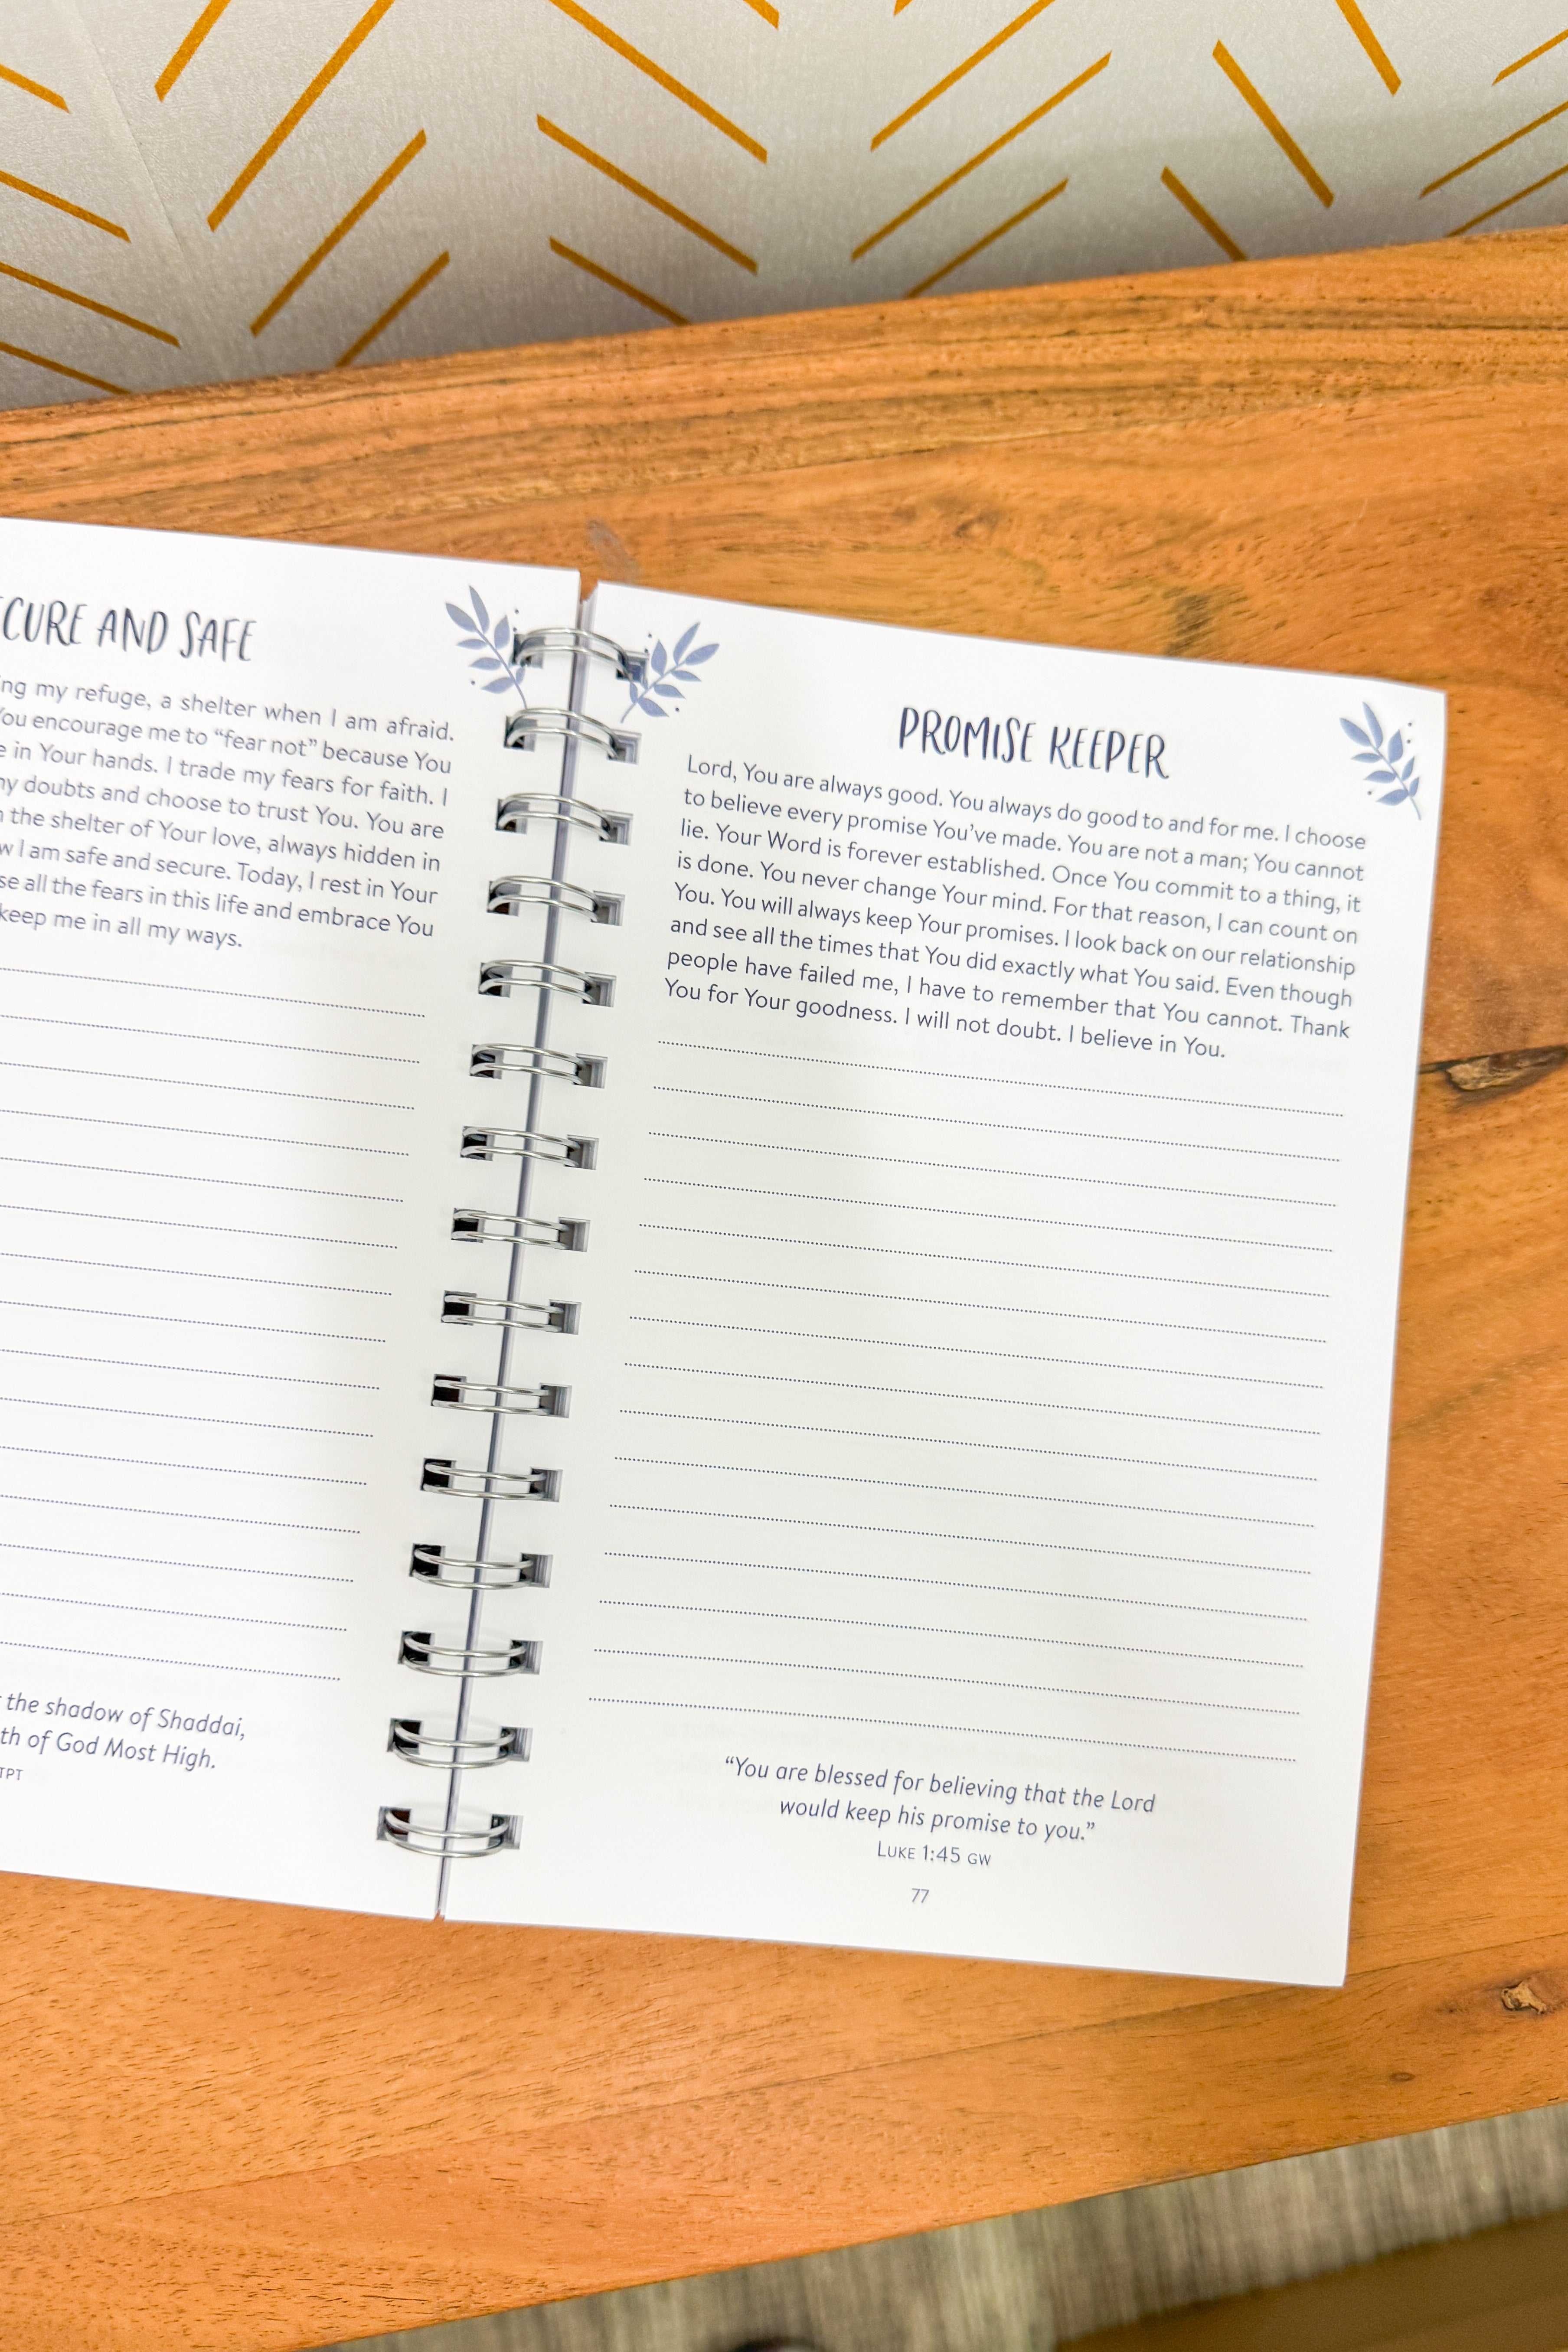 CURE AND SAFE
ng my refuge, a shelter when I am afraid.
You encourage me to “fear not” because You
in Your hands. I trade my fears for faith. I
my doubts and choose to trust You. You are
the shelter of Your love, always hidden in
I am safe and secure. Today, I rest in Your
all the fears in this life and embrace You
keep me in all my ways.
the shadow of Shaddai,
th of God Most High.
TPT
PROMISE KEEPER
Lord, You are always good. You always do good to and for me. I choose
to believe every promise You’ve made. You are not a man; You cannot
lie. Your Word is forever established. Once You commit to a thing, it
is done. You never change Your mind. For that reason, I can count on
You. You will always keep Your promises. I look back on our relationship
and see all the times that You did exactly what You said. Even though
people have failed me, I have to remember that You cannot. Thank
You for Your goodness. I will not doubt. I believe in You.
“You are blessed for believing that the Lord
would keep his promise to you.”
LUKE 1:45 GW
77